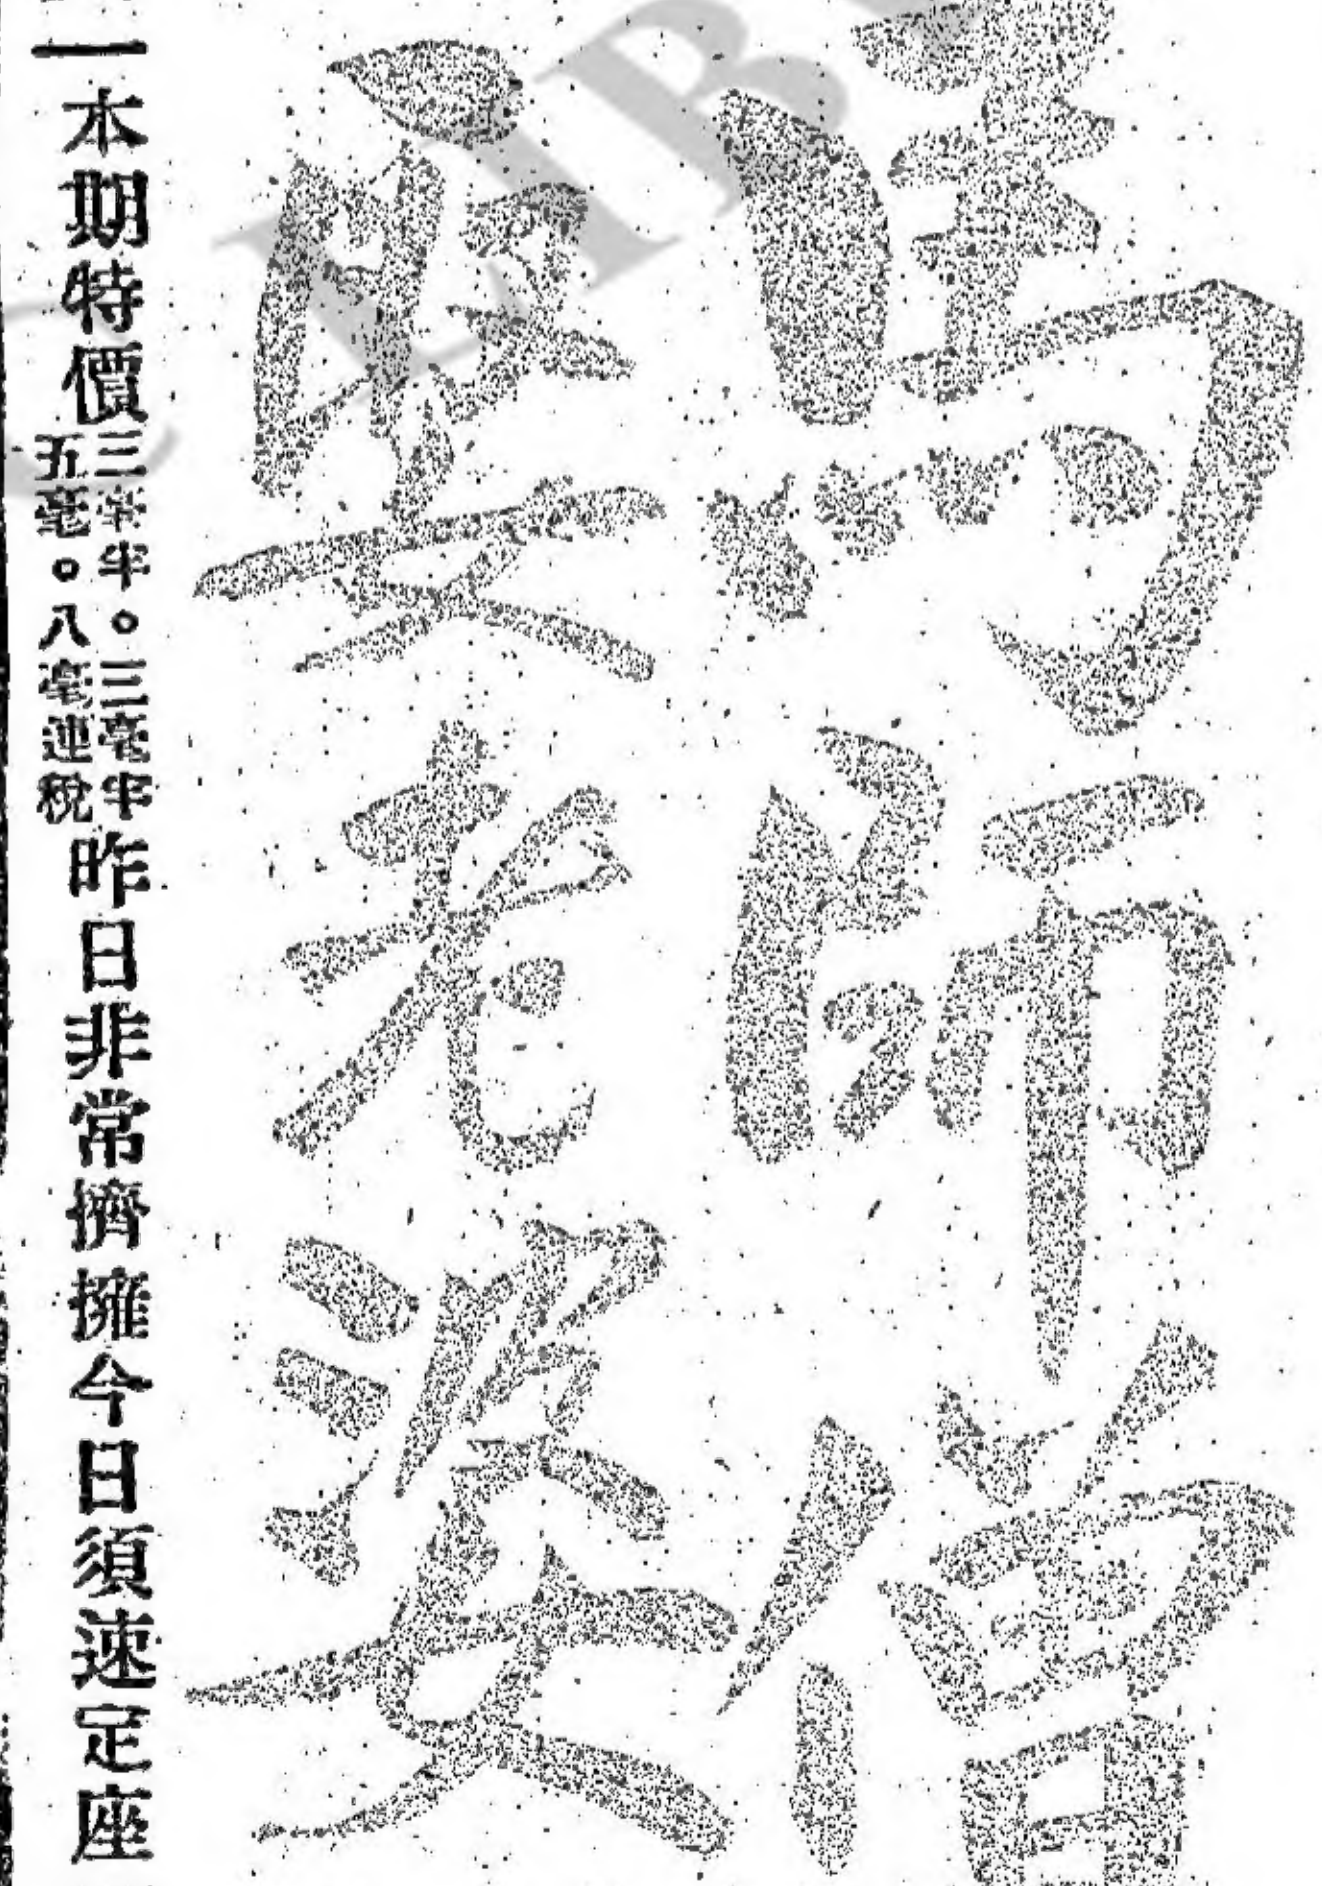 馬師曾
醫老婆
本期特價三毫半。三毫半五毫。八毫連稅昨日非常擠擁今日須速定座